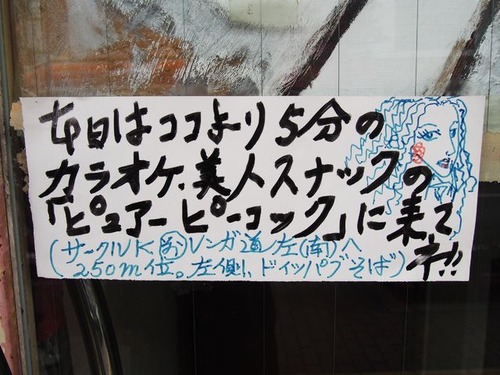 毎日はココより5分の
カラオケ、美人スナックの
「ピュアーピーコック」に来て
ネ!!
(サークルK レンガ道左(南)へ
250m位。左側、ドイツパブそば)